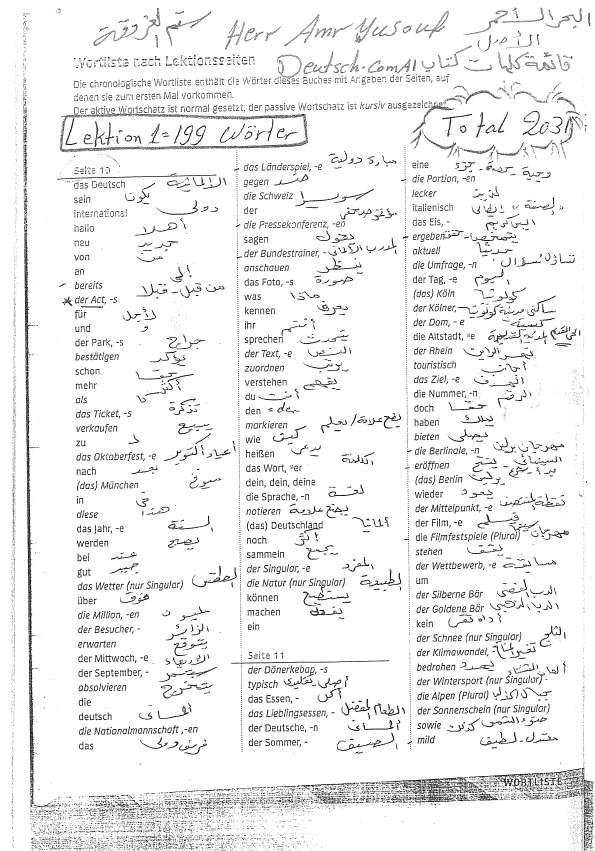 Herr Amr Yusouf
البحر الأحمر
قائمة كلمات كتاب Deutsch.com A1
Wortliste nach Lektionsseiten
Die chronologische Wortliste enthält die Wörter dieses Buches mit Angaben der Seiten, auf
denen sie zum ersten Mal vorkommen.
Der aktive Wortschatz ist normal gesetzt, der passive Wortschatz ist kursiv ausgezeichnet
Lektion 1=199 Wörter
Total 2031
Seite 10
das Deutsch الألمانية
sein يكون
international دولى
hallo أهلا
neu جديد
von من
an إلى
bereits من قبل - قبلا
der Act, -s
für لأجل
und و
der Park, -s جراج
bestätigen يؤكد
schon حقا
mehr أكثر
als ك
das Ticket, -s تذكرة
verkaufen يبيع
zu ل
das Oktoberfest, -e أعياد أكتوبر
nach بعد
(das) München ميونخ
in فى
diese هذا
das Jahr, -e السنة
werden يصبح
bei عند
gut جيد
das Wetter (nur Singular) الطقس
über فوق
die Million, -en مليون
der Besucher, - الزائر
erwarten يتوقع
der Mittwoch, -e الأربعاء
der September, - سبتمبر
absolvieren يتخرج
die
deutsch ألمانى
die Nationalmannschaft ,-en
das فريق دولى
das Länderspiel, -e مباراة دولية
gegen ضد
die Schweiz سويسرا
der
die Pressekonferenz, -en مؤتمر صحفى
sagen يقول
der Bundestrainer, - المدرب الألمانى
anschauen ينظر
das Foto, -s صورة
was ماذا
kennen يعرف
ihr أنتم
sprechen يتحدث
der Text, -e النص
zuordnen يرتب
verstehen يفهم
du أنت
den = den
markieren يضع علامة / يعلم
wie كيف
heißen يدعى
das Wort, ⸚er الكلمة
dein, dein, deine
die Sprache, -n لغة
notieren يضع علامة
(das) Deutschland ألمانيا
noch أكثر
sammeln يجمع
der Singular, -e المفرد
die Natur (nur Singular) الطبيعة
können يستطيع
machen يفعل
ein
Seite 11
der Dönerkebap, -s
typisch أصلى - تقليدى
das Essen, - أكل
das Lieblingsessen, - الطعام المفضل
der Deutsche, -n ألمانى
der Sommer, - الصيف
eine
die Portion, -en وجبة - حصة - جزء
lecker لذيذ
italienisch إيطالى
das Eis, - الآيس كريم
ergeben
aktuell حديثا
die Umfrage, -n تساؤل
der Tag, -e اليوم
(das) Köln كولونيا
der Kölner, - ساكن مدينة كولونيا
der Dom, - e كنيسة
die Altstadt, ⸚e المدينة القديمة
der Rhein نهر الراين
touristisch أجانب
das Ziel, -e الهدف
die Nummer, -n الرقم
doch حقا
haben يملك
bieten يعطى
die Berlinale, -n مهرجان برلين السينمائى
eröffnen يفتح
(das) Berlin برلين
wieder يعود
der Mittelpunkt, -e نقطة المنتصف
der Film, -e فيلم
die Filmfestspiele (Plural) مهرجان
stehen يقف
der Wettbewerb, -e مسابقة
um
der Silberne Bär الدب الفضى
der Goldene Bär الدب الذهبى
kein أداة نفى
der Schnee (nur Singular) الثلج
der Klimawandel, - تغير المناخ
bedrohen يهدد
der Wintersport (nur Singular) ألعاب الشتاء
die Alpen (Plural) جبال الألب
der Sonnenschein (nur Singular)
sowie ضوء الشمس كذلك
mild معتدل - لطيف
WORTLISTE